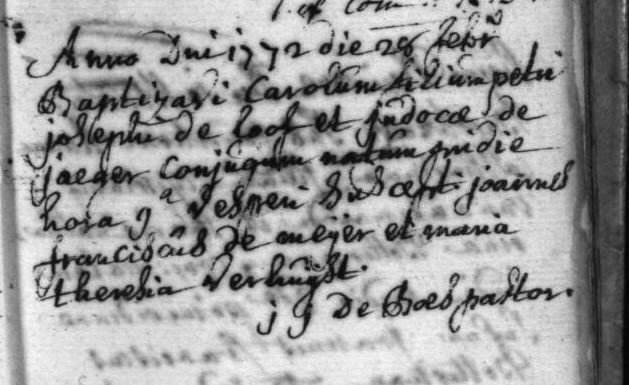 Anno Dni 1772 die 28 febr
Baptizavi Carolum filium petri
josephi de loof et judocæ de
jaeger conjugum natum pridie
hora 9a vesperi susceptores joannes
franciscus de meyer et maria
theresia verhulst.
j j De Boes pastor.